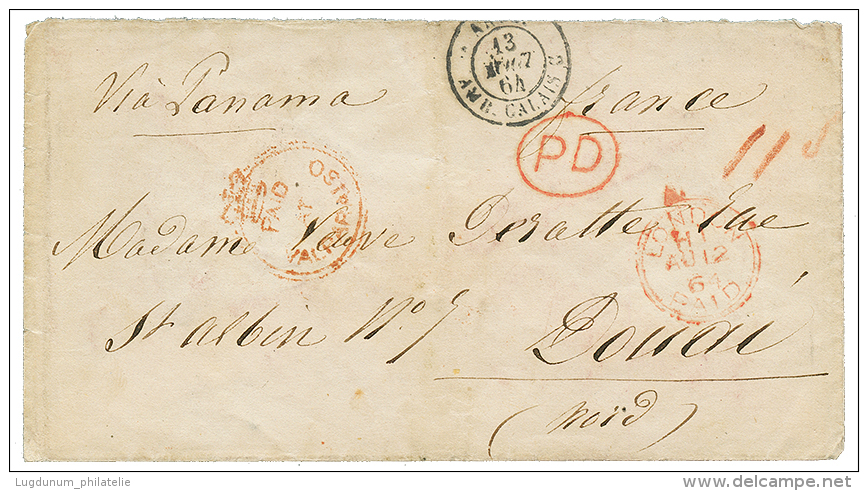 13
64
AMB. CALAIS
Via Panama
france
PD
11
PAID
AT
VALPARAISO
LONDON
AU 12
64
PAID
Madame Veuve Deratte Rue
St albin No. 7
Douai
(Nord)
Lugdunum_philatelie
www.delcampe.net